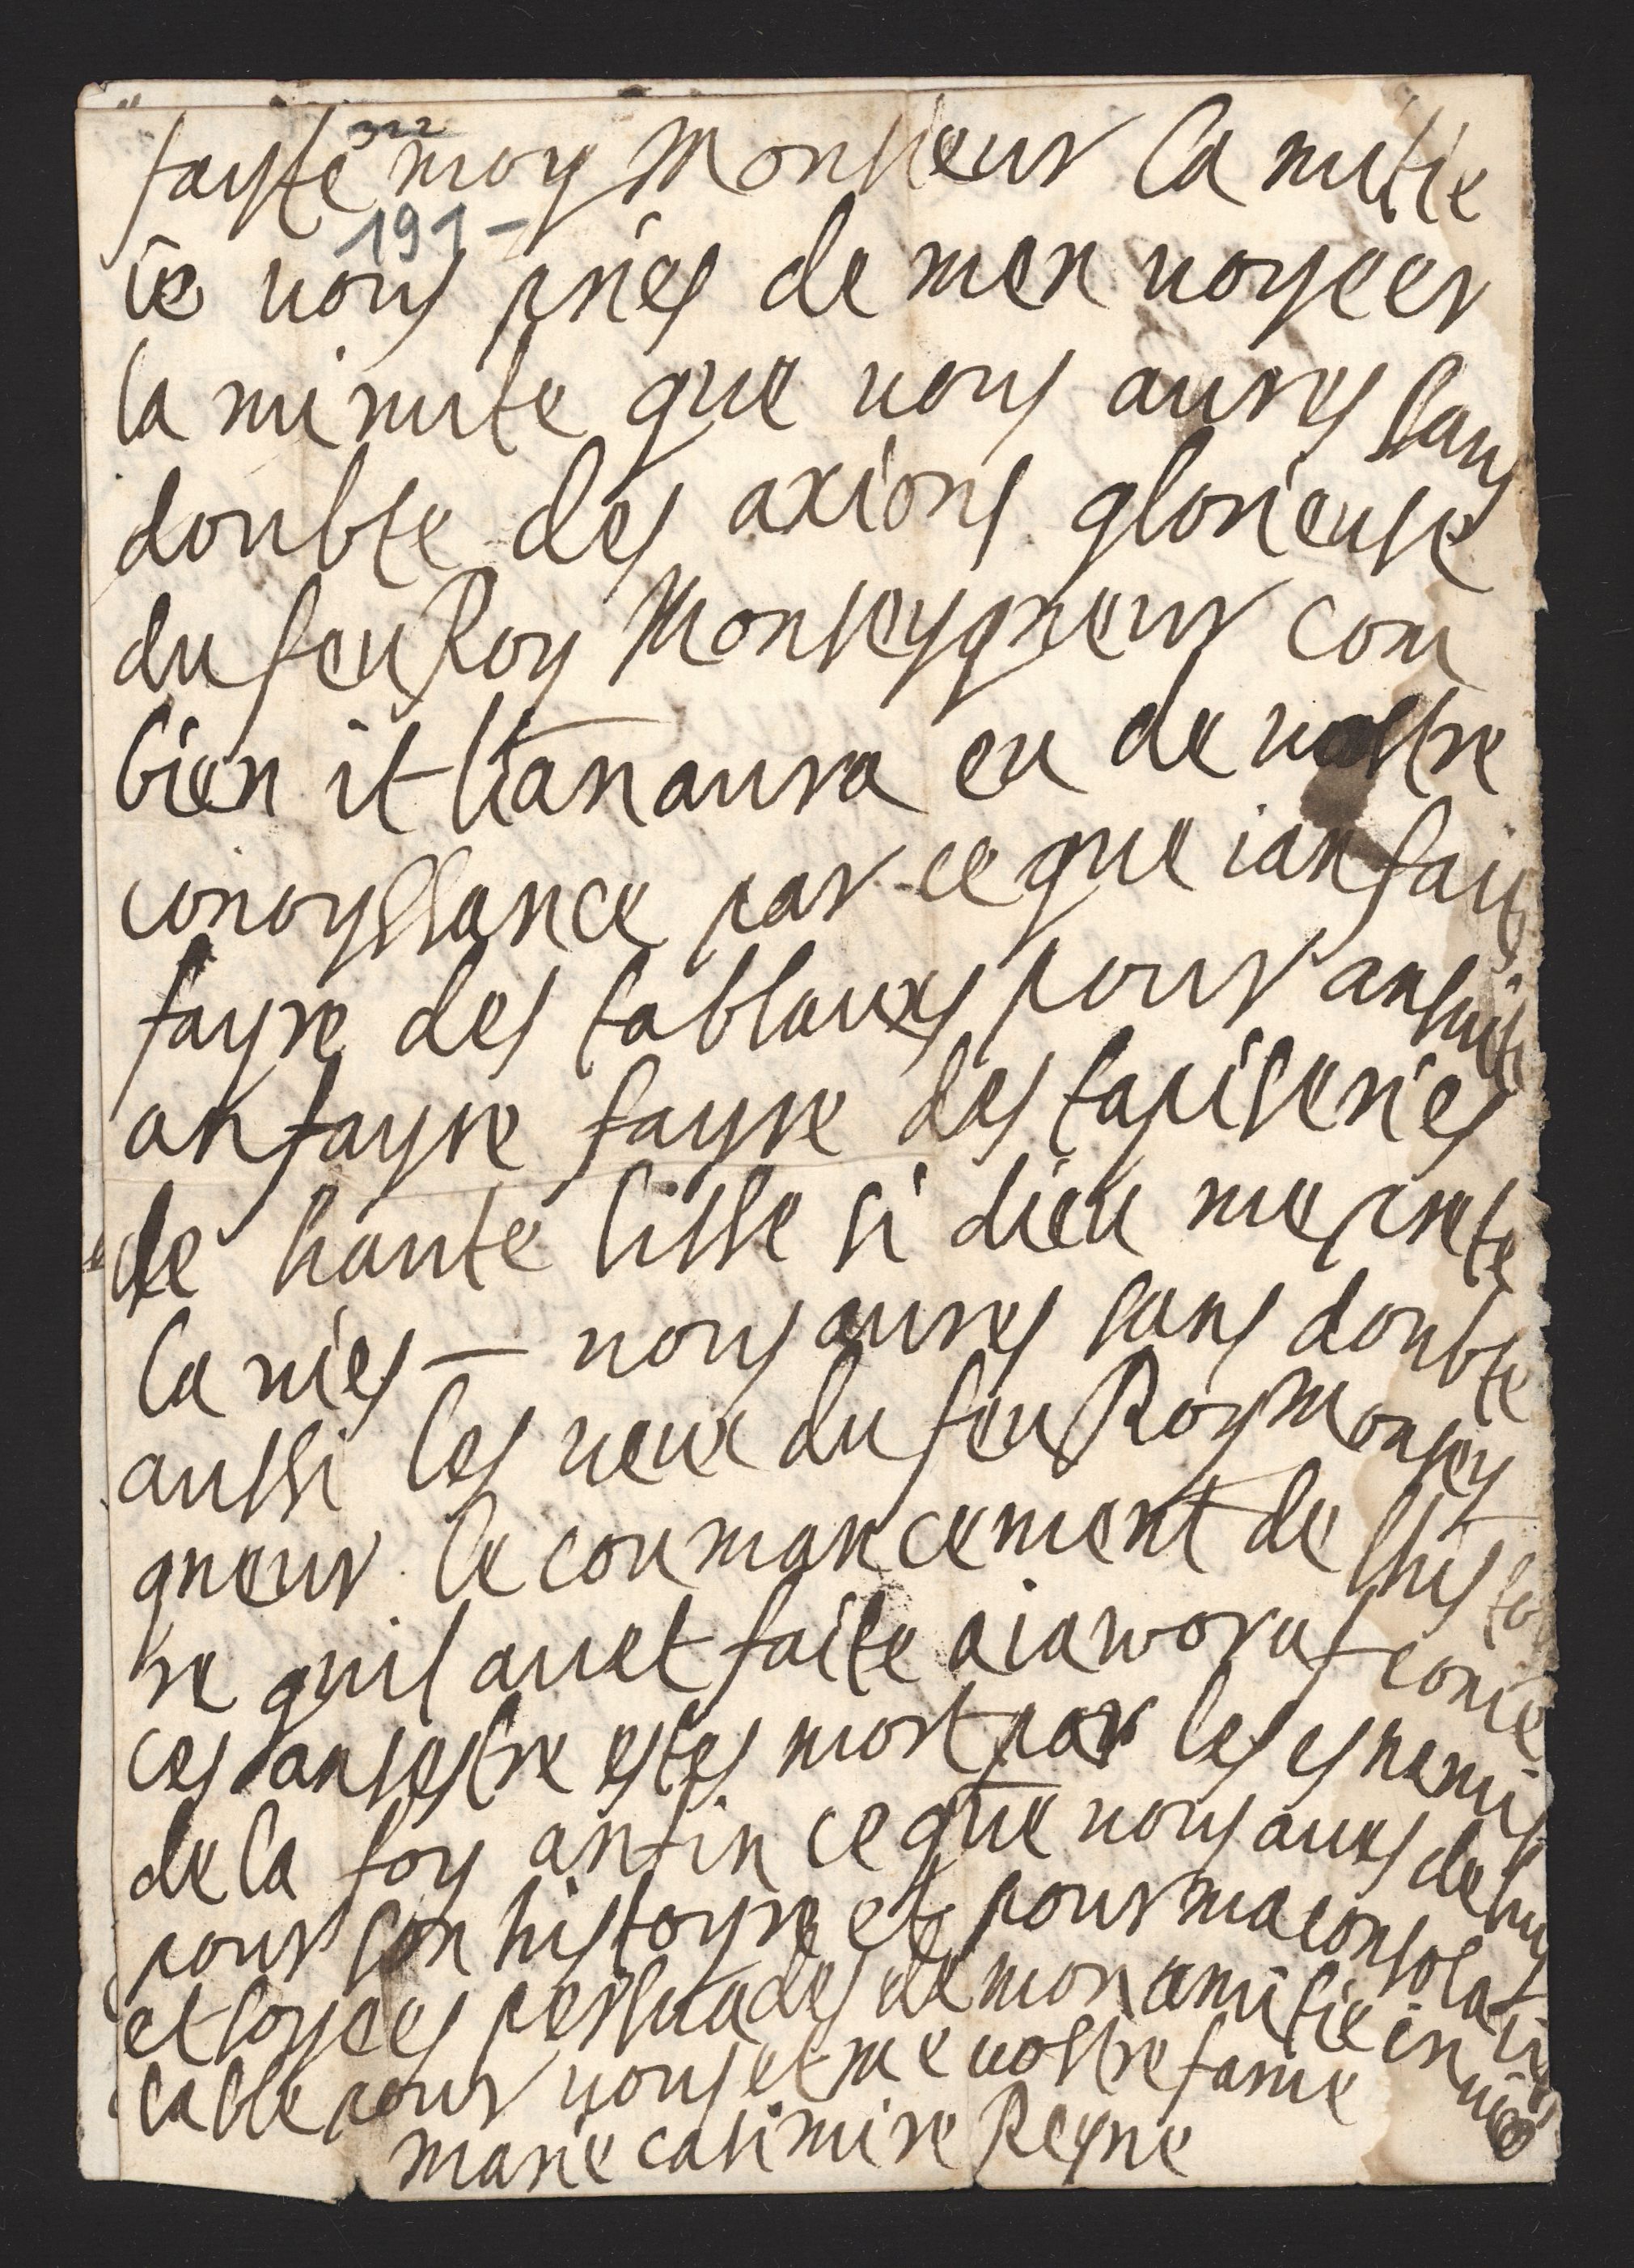 322
fayste moy Monsieur lamitie
191-
ie vous pries de men voyeer
la minute que vous aures sans
doubte des axions glorieuse
du feu Roy Monseygneur com
bien it lian aura eu de vostre
conoyssance par ce que ian fais
fayre des tablauxs pour ansuite
an fayre fayre des tapiseries
de haute lisse si dieu me prete
la vies — vous aures sans doubte
aussi les veux du feu Roy Monsey
gneur le coumancement de lhistoy
re quil avet faite a iaworuf come
ces ansestre estes mort par les esnemis
de la foy anfin ce que vous aves de luy
pour son histoyre et pour ma consolati
et soyees persuades de mon amitie in
cable pour vous et me vostre fame
marie casimire Reyne